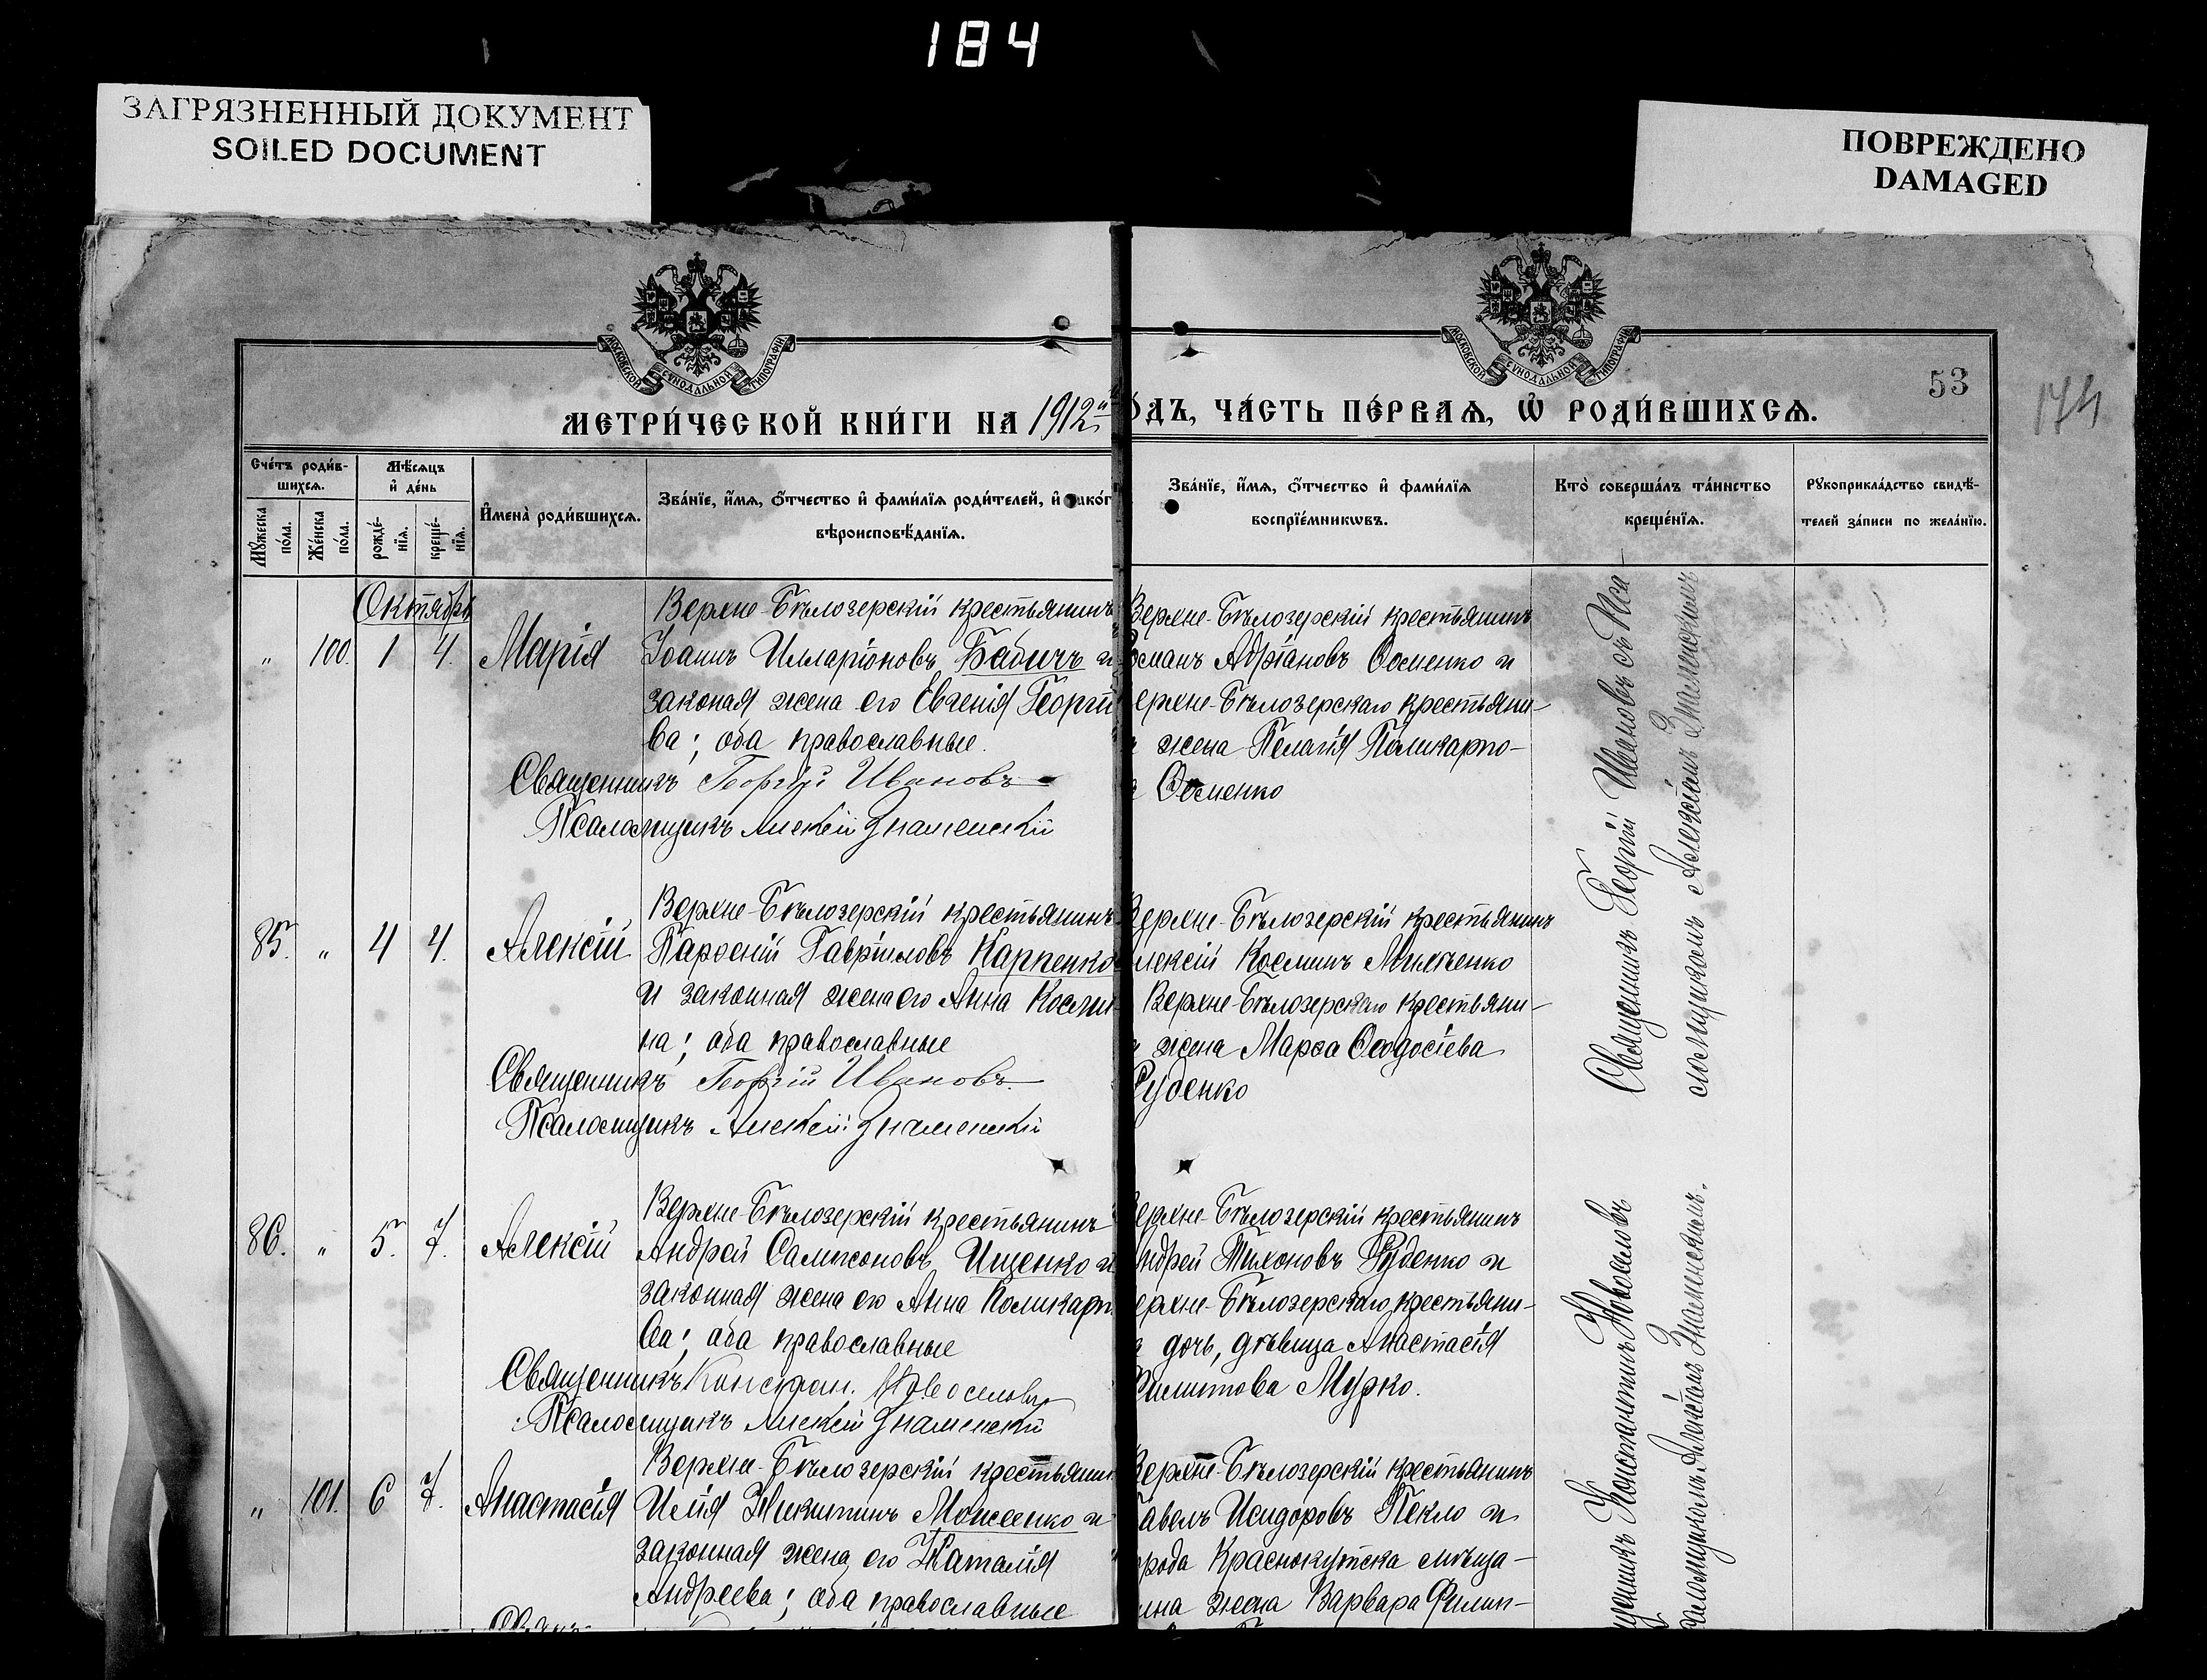 184
ЗАГРЯЗНЕННЫЙ ДОКУМЕНТ
SOILED DOCUMENT
ПОВРЕЖДЕНО
DAMAGED
МОСКОВСКОЙ СѴНОДАЛЬНОЙ ТИПОГРАФІИ
МОСКОВСКОЙ СѴНОДАЛЬНОЙ ТИПОГРАФІИ
53
174
МЕТРИ́ЧЕСКОЙ КНИ́ГИ НА 1912й
ОДЪ, ЧА́СТЬ ПЕ́РВАѦ, Ѽ РОДИ́ВШИХСѦ.
Сче́тъ роди́в-
шихсѧ.
Мꙋ́жеска по́ла.
Же́нска по́ла.
Мѣ́сѧцъ
и҆ де́нь
рожде́-
нїѧ.
креще́-
нїѧ.
И҆мена̀ роди́вшихсѧ.
Зва́нїе, и҆́мѧ, ѻ҆́тчество и҆ фами́лїѧ роди́телей, и҆ како́г
вѣроисповѣ́данїѧ.
Зва́нїе, и҆́мѧ, ѻ҆́тчество и҆ фами́лїѧ
воспрїе́мникѡвъ.
Кто̀ соверша́лъ та́инство
креще́нїѧ.
Рꙋкоприкла́дство свидѣ́-
телей за́писи по жела́нїю.
Октябрь
" 100. 1 4. Марія
Верхне-Бѣлозерскій крестьянинъ
Іоаннъ Илларіоновъ Бабичъ и
законая жена его Евгенія Георгі
ва; оба православные.
Священникъ Георгій Ивановъ
Псаломщикъ Алексій Знаменскій
Верхне-Бѣлозерскій крестьянинъ
оманъ Адріановъ Ѳоменко и
ерхне-Бѣлозерскаго крестьяни-
а жена Пелагія Поликарпо-
а Ѳоменко
Священникъ Георгій Ивановъ съ Пса
ломщикомъ Алексіемъ Знаменскимъ
85. " 4 4. Алексій
Верхне-Бѣлозерскій крестьянинъ
Парѳеній Гавріиловъ Карпенко
и законная жена его Анна Косми
на; оба православные
Священникъ Георгій Ивановъ
Псаломщикъ Алексій Знаменскій
Верхне-Бѣлозерскій крестьянинъ
лексій Косминъ
Верхне-Бѣлозерскаго крестьяни-
а жена Марѳа Ѳеодосіева
Руденко
86. " 5. 7. Алексій
Верхне-Бѣлозерскій крестьянинъ
Андрей Сампсоновъ Ищенко и
законная жена его Анна Поликарп
ва; оба православные
Священникъ Констан. Новоселовъ
Псаломщикъ Алексій Знаменскій
ерхне-Бѣлозерскій крестьянинъ
ндрей Тихоновъ Руденко и
ерхне-Бѣлозерскаго крестьяни-
а дочь, дѣвица Анастасія
Филиппова Мурко.
щенникъ Константинъ Новоселовъ
саломщикомъ Алексіемъ Знаменскимъ.
" 101. 6 7. Анастасія
Верхне-Бѣлозерскій крестьянин
Илія Никитинъ Моисеенко и
законная жена его Наталія
Андреева; оба православные
Верхне-Бѣлозерскій крестьянинъ
авелъ Исидоровъ Пекло и
рода Краснокутска мѣща-
ина жена Варвара Филип-